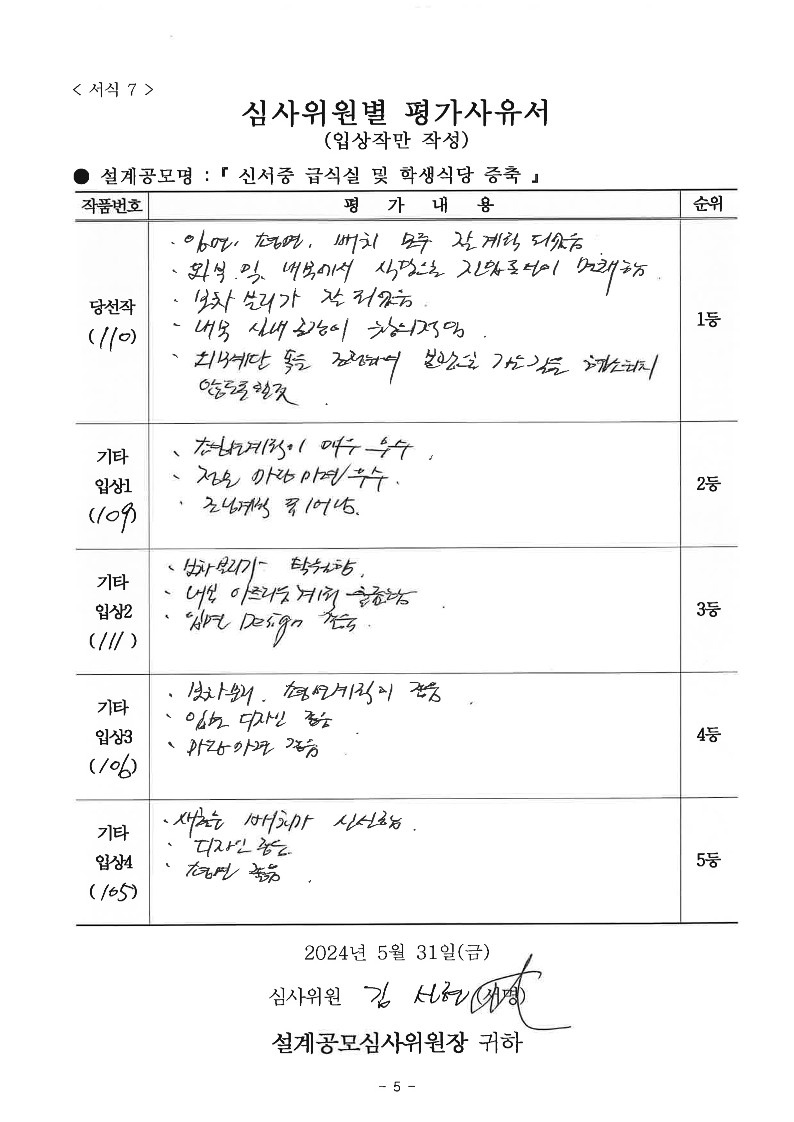 < 서식 7 >
심사위원별 평가사유서
(입상작만 작성)
● 설계공모명 : 『 신서중 급식실 및 학생식당 증축 』
작품번호 평 가 내 용 순위
당선작
(110)
· 입면, 평면, 배치 모두 잘 계획 되었음
· 외부 및 내부에서 식당으로 진입동선이 명쾌함.
· 보차 분리가 잘 되었음.
· 내부 실내 공간이 창의적임.
· 외부계단 폭을
않도록 할 것.
1등
기타
입상1
(109)
· 평면계획이 매우 우수.
· 우수.
· 조닝계획 뛰어남.
2등
기타
입상2
(111)
· 보차분리가 탁월함.
· 내부 계획 훌륭함
· 입면 Design 좋음.
3등
기타
입상3
(106)
· 보차분리, 평면계획이 좋음.
· 입면 디자인 좋음
· 좋음
4등
기타
입상4
(105)
· 새로운 배치가 신선함.
· 디자인 좋음
· 평면 좋음.
5등
2024년 5월 31일(금)
심사위원 김 (서명)
설계공모심사위원장 귀하
- 5 -